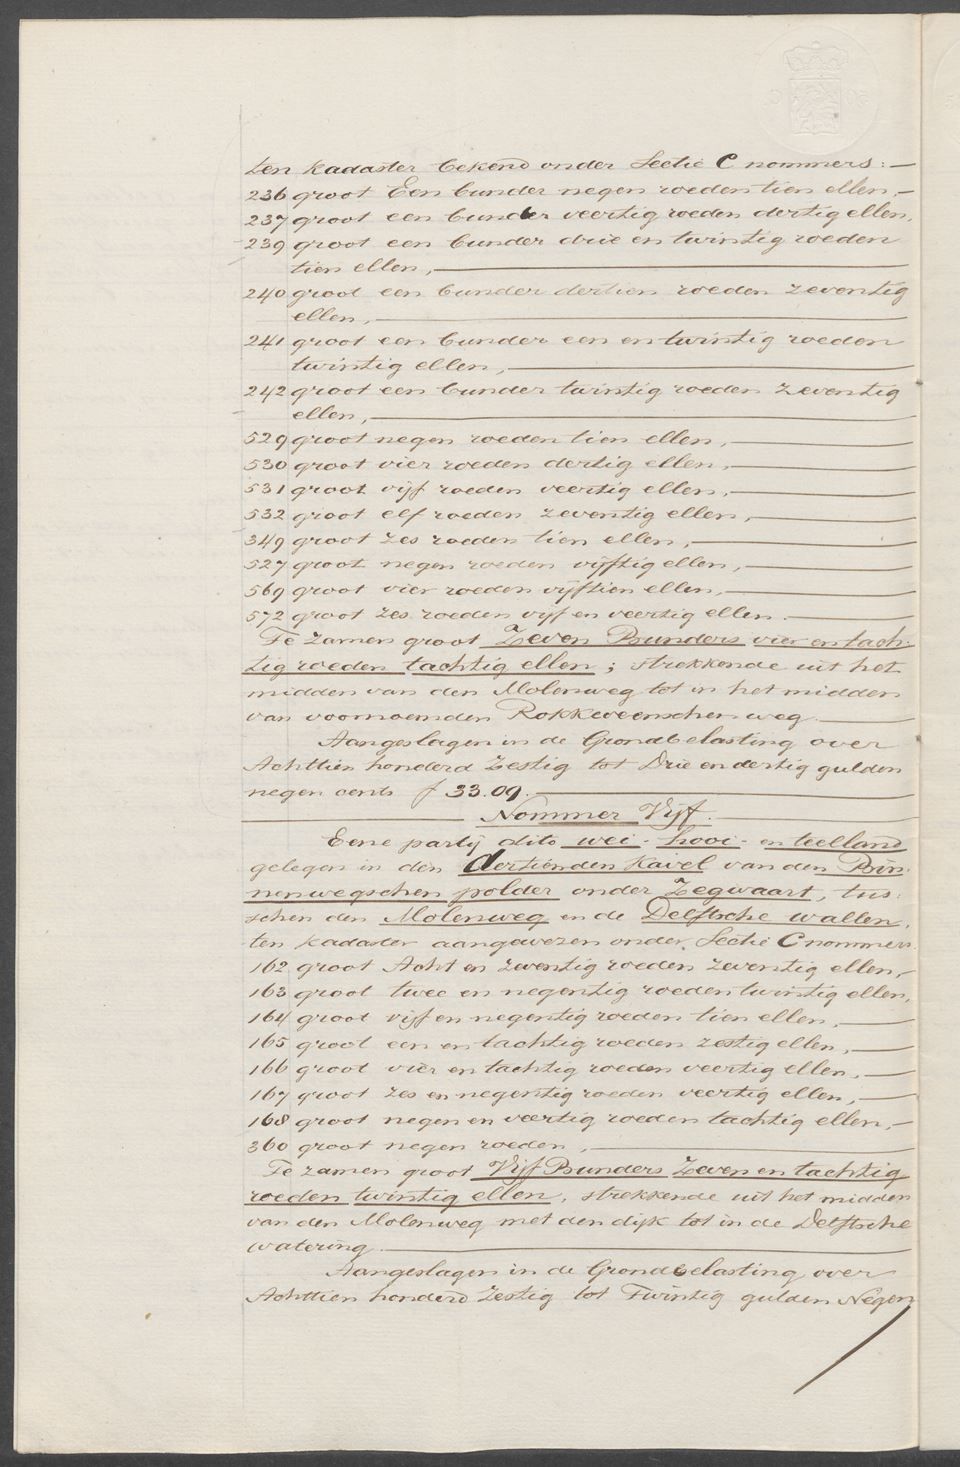 ten Kadaster bekend onder Sectie C nommers:—
236 groot Een bunder negen roeden tien ellen,—
237 groot een bunder veertig roeden dertig ellen,
239 groot een bunder drie en twintig roeden
tien ellen,
240 groot een bunder dertien roeden zeventig
ellen,
241 groot een bunder een en twintig roeden
twintig ellen,
242 groot een bunder twintig roeden zeventig
ellen,
529 groot negen roeden tien ellen,
530 groot vier roeden dertig ellen,
531 groot vijf roeden veertig ellen,
532 groot elf roeden zeventig ellen,
349 groot zes roeden tien ellen,
527 groot negen roeden vijftig ellen,
569 groot vier roeden vijftien ellen,
572 groot zes roeden vijf en veertig ellen.
Te zamen groot Zeven Bunders vier en tach-
tig roeden tachtig ellen; strekkende uit het
midden van den Molenweg tot in het midden
van voornoemden Rokkeveenschen weg.
Aangeslagen in de Grondbelasting over
Achttien honderd Zestig tot Drie en dertig gulden
negen cents f 33.09.
Nommer Vijf.
Eene partij dito wei- hooi- en teelland
gelegen in den dertienden Kavel van den Bin-
nenwegschen polder onder Zegwaart, tus-
schen den Molenweg en de Delftsche wallen,
ten Kadaster aangewezen onder Sectie C nommers
162 groot Acht en zeventig roeden zeventig ellen,—
163 groot twee en negentig roeden twintig ellen,
164 groot vijf en negentig roeden tien ellen,
165 groot een en tachtig roeden zestig ellen,
166 groot vier en tachtig roeden veertig ellen,
167 groot zes en negentig roeden veertig ellen,
168 groot negen en veertig roeden tachtig ellen,—
360 groot negen roeden,
Te zamen groot Vijf Bunders Zeven en tachtig
roeden twintig ellen, strekkende uit het midden
van den Molenweg met den dijk tot in de Delftsche
watering.
Aangeslagen in de Grondbelasting over
Achttien honderd Zestig tot Twintig gulden Negen